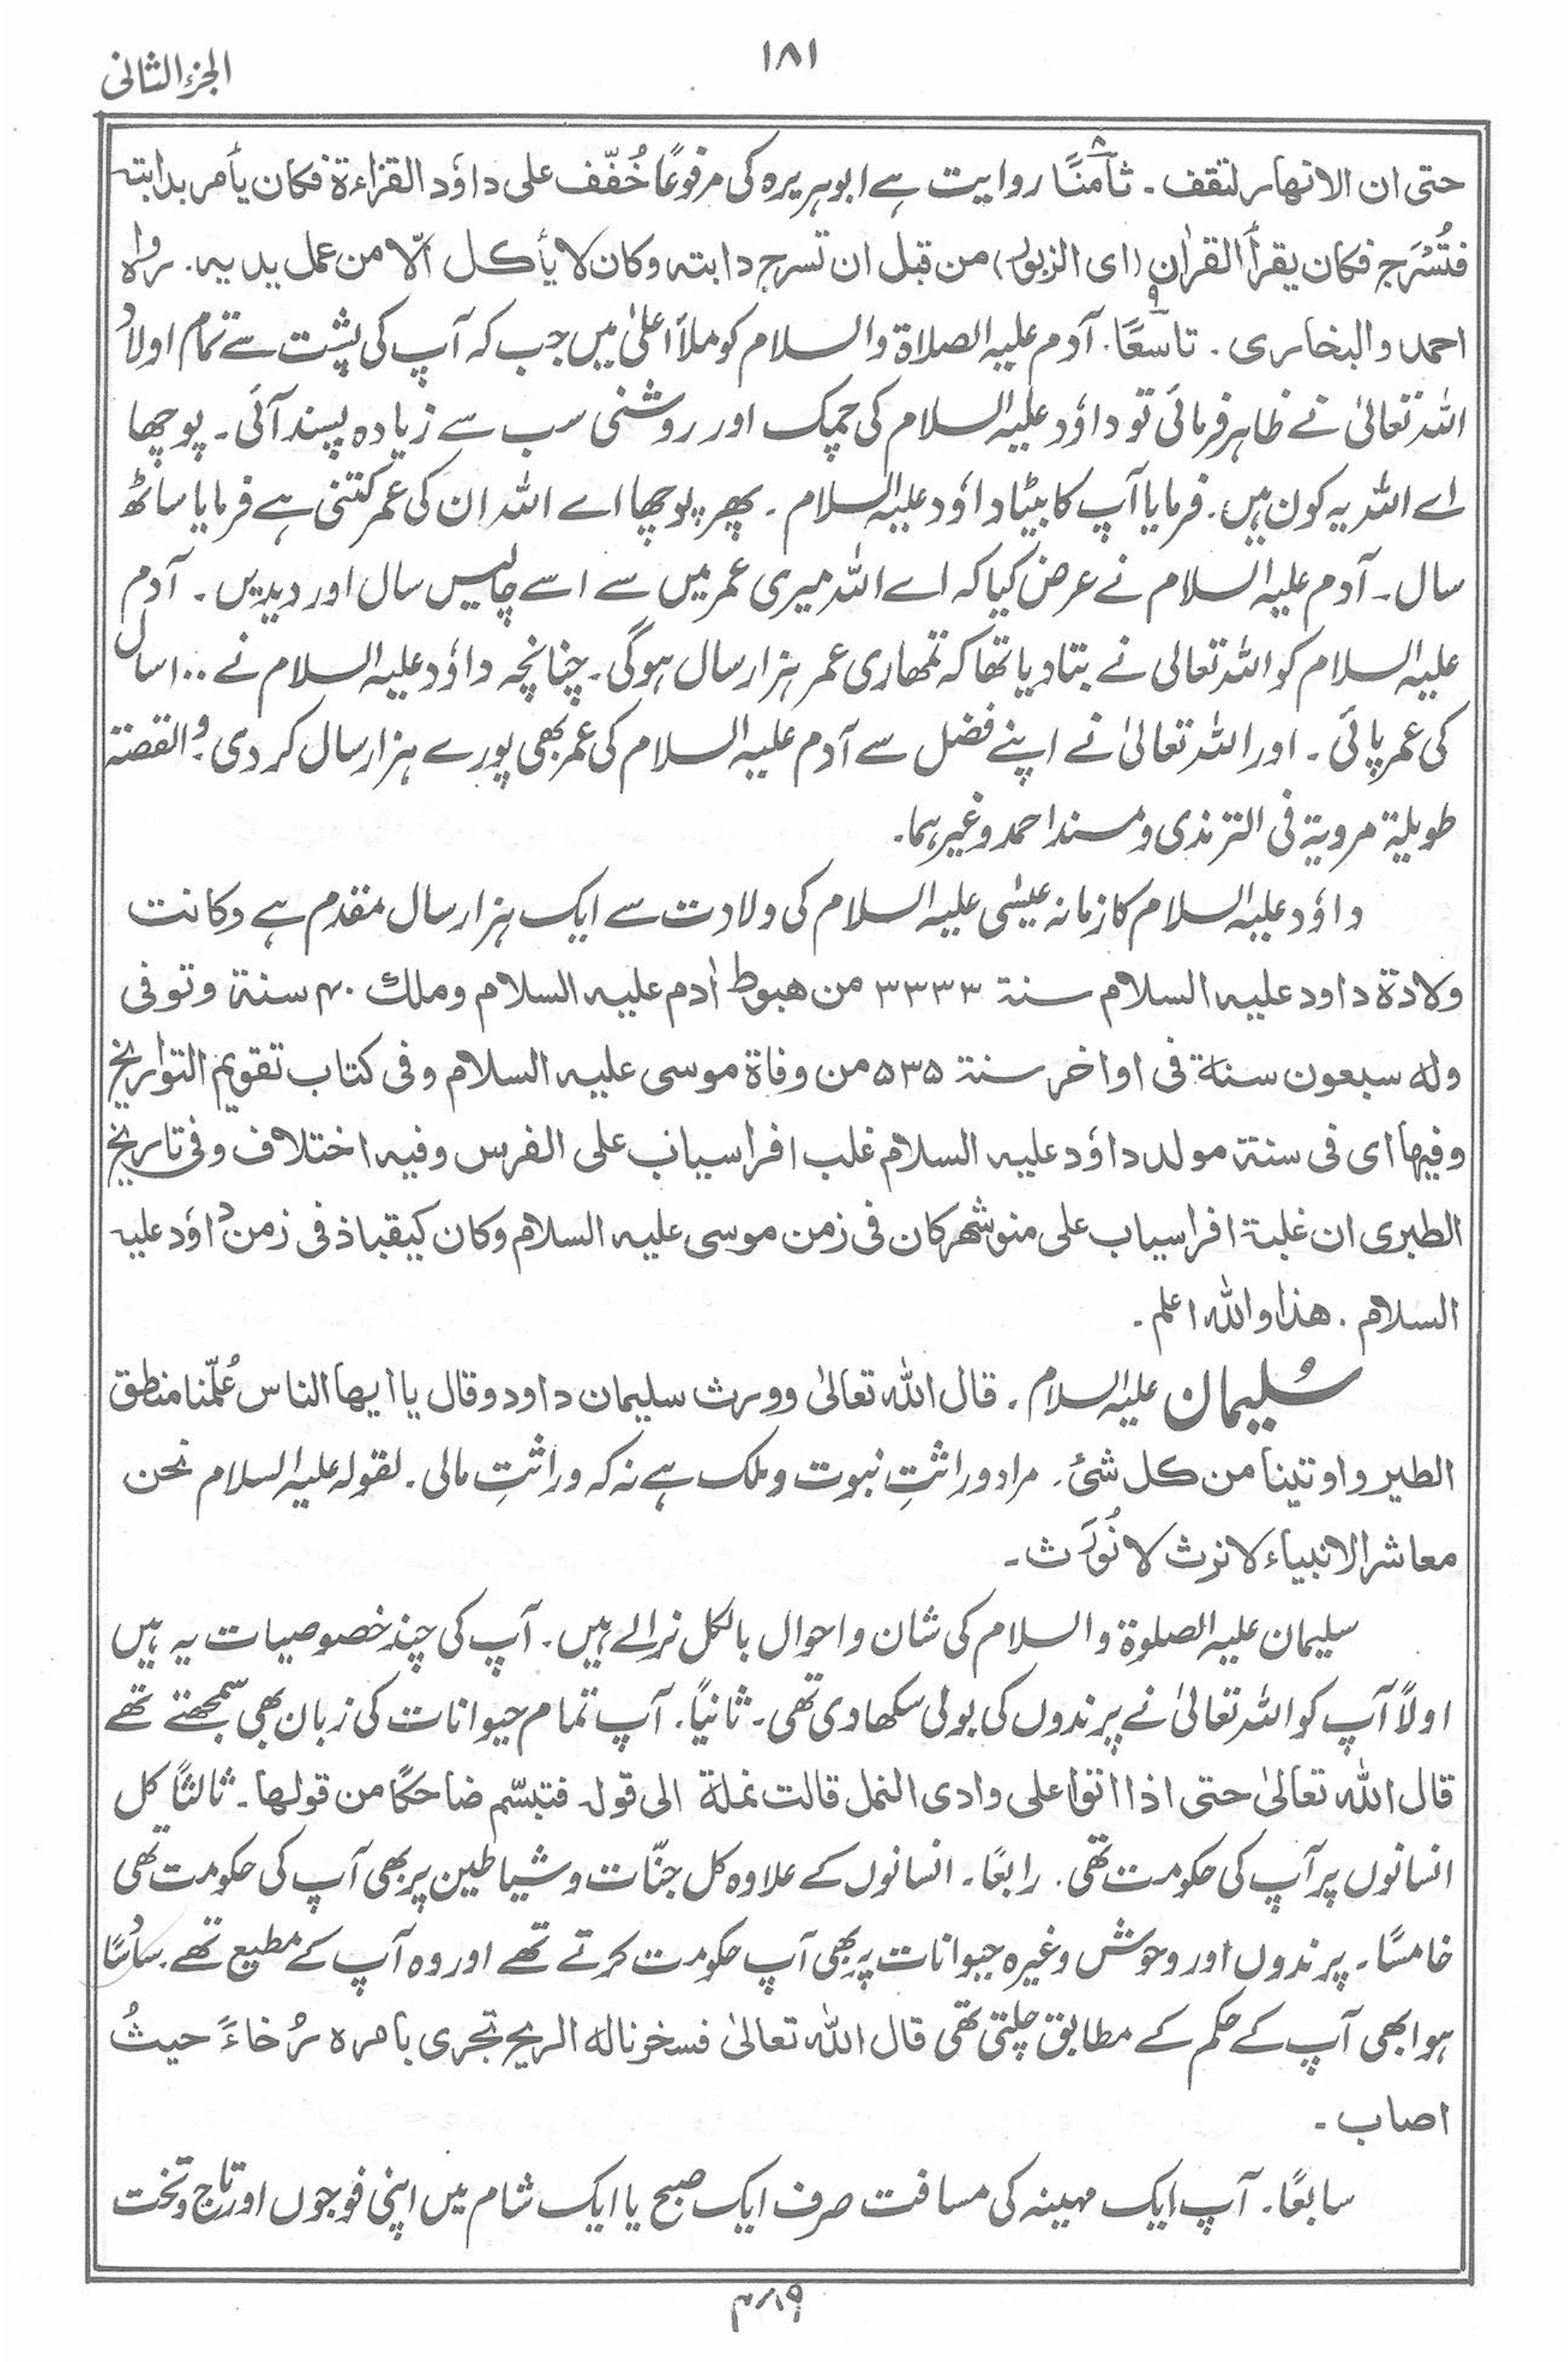 ۱۸۱
الجزء الثانی
حتی ان الانھار لتقف ۔ ثامنًا روایت ہے ابوہریرہ کی مرفوعًا خُفّف علی داوٗد القراءۃ فکان یأمر بدابتہ
فتُسْرَج فکان یقرأ القراٰن (ای الزبور) من قبل ان تسرج دابتہ وکان لا یأکل الّا من عمل یدیہ۔ رواہ
احمد والبخاری ۔ تاسعًا۔ آدم علیہ الصلاۃ والسلام کو ملأ اعلیٰ میں جب کہ آپ کی پشت سے تمام اولاد
اللہ تعالیٰ نے ظاہر فرمائی تو داوٗد علیہ السلام کی چمک اور روشنی سب سے زیادہ پسند آئی ۔ پوچھا
اے اللہ یہ کون ہیں۔ فرمایا آپ کا بیٹا داوٗد علیہ السلام ۔ پھر پوچھا اے اللہ ان کی عمر کتنی ہے فرمایا ساٹھ
سال ۔ آدم علیہ السلام نے عرض کیا کہ اے اللہ میری عمر میں سے اسے چالیس سال اور دیدیں ۔ آدم
علیہ السلام کو اللہ تعالی نے بتا دیا تھا کہ تمھاری عمر ہزار سال ہوگی ۔ چنانچہ داوٗد علیہ السلام نے ۱۰۰ سال
کی عمر پائی ۔ اور اللہ تعالیٰ نے اپنے فضل سے آدم علیہ السلام کی عمر بھی پورے ہزار سال کر دی ۔ والقصۃ
طویلۃ مرویۃ فی الترمذی ومسند احمد وغیرہما۔
داوٗد علیہ السلام کا زمانہ عیسٰی علیہ السلام کی ولادت سے ایک ہزار سال مقدم ہے وکانت
ولادۃ داود علیہ السلام سنۃ ۳۳۳۳ من ھبوط اٰدم علیہ السلام وملک ۴۰ سنۃ وتوفی
ولہ سبعون سنۃ فی اواخر سنۃ ۵۳۵ من وفاۃ موسی علیہ السلام وفی کتاب تقویم التواریخ
وفیھا ای فی سنۃ مولد داوٗد علیہ السلام غلب افراسیاب علی الفرس وفیہ اختلاف وفی تاریخ
الطبری ان غلبۃ افراسیاب علی منوشھر کان فی زمن موسی علیہ السلام وکان کیقباذ فی زمن داوٗد علیہ
السلام ۔ ھذا واللہ اعلم ۔
سُلیمان علیہ السلام ۔ قال اللہ تعالیٰ وورث سلیمان داود وقال یا ایھا الناس عُلّمنا منطق
الطیر واوتینا من کل شیٔ ۔ مراد وراثتِ نبوت وملک ہے نہ کہ وراثتِ مالی ۔ لقولہ علیہ السلام نحن
معاشر الانبیاء لا نرث لا نُورَث ۔
سلیمان علیہ الصلوٰۃ والسلام کی شان واحوال بالکل نرالے ہیں ۔ آپ کی چند خصوصیات یہ ہیں
اولاً آپ کو اللہ تعالیٰ نے پرندوں کی بولی سکھا دی تھی ۔ ثانیاً ۔ آپ تمام حیوانات کی زبان بھی سمجھتے تھے
قال اللہ تعالیٰ حتی اذا اتوا علی وادی النمل قالت نملۃ الی قولہ فتبسّم ضاحکًا من قولھا ۔ ثالثًا کل
انسانوں پر آپ کی حکومت تھی ۔ رابعًا ۔ انسانوں کے علاوہ کل جنّات وشیاطین پر بھی آپ کی حکومت تھی
خامسًا ۔ پرندوں اور وحوش وغیرہ حیوانات پر بھی آپ حکومت کرتے تھے اور وہ آپ کے مطیع تھے ۔ سادسًا
ہوا بھی آپ کے حکم کے مطابق چلتی تھی قال اللہ تعالیٰ فسخرنا لہ الریح تجری بامرہ رُخاءً حیثُ
اصاب ۔
سابعًا ۔ آپ ایک مہینہ کی مسافت صرف ایک صبح یا ایک شام میں اپنی فوجوں اور تاج وتخت